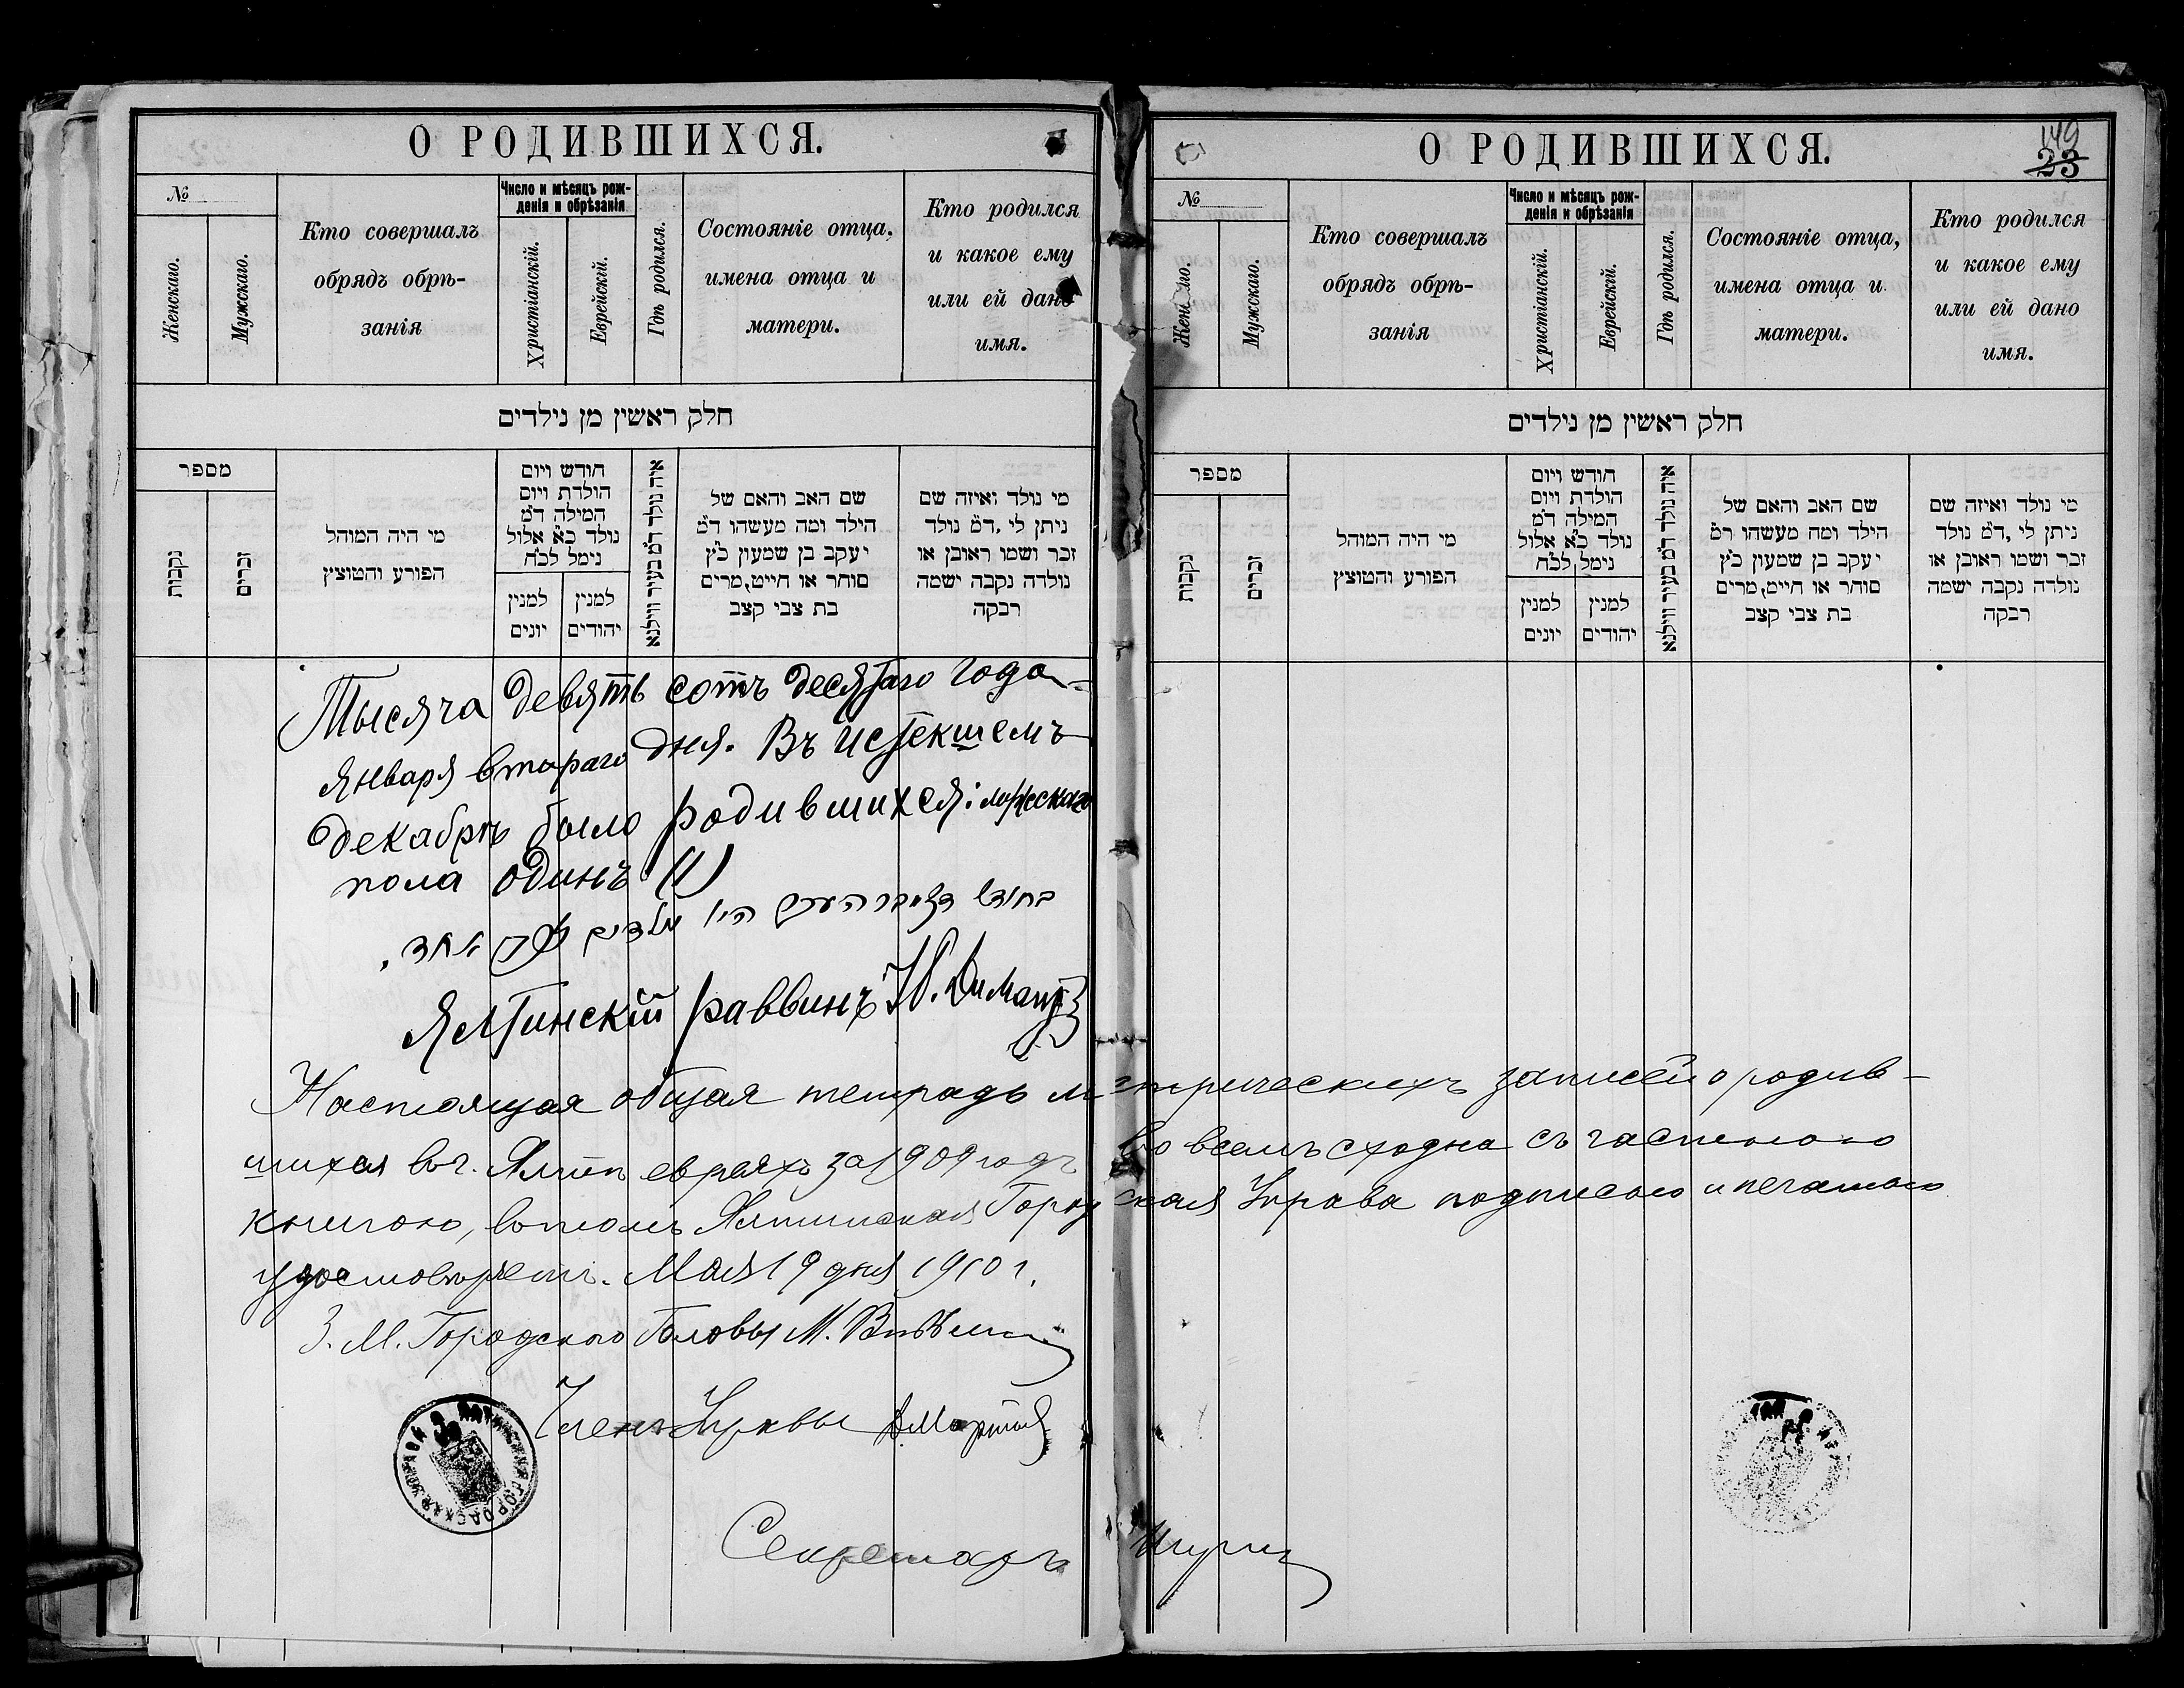 О РОДИВШИХСЯ.
№
Женскаго.
Мужскаго.
Кто совершалъ
обрядъ обрѣ-
занія
Число и мѣсяцъ рож-
денія и обрѣзанія
Христіанскій.
Еврейскій.
Гдѣ родился.
Состояніе отца,
имена отца и
матери.
Кто родился
и какое ему
или ей дано
имя.
חלק ראשין מן נילדים
מספר
נקבות
זכרים
מי היה המוהל
הפורע והמוצץ
חודש ויום
הולדת ויום
המילה ד״מ
נולד כ״א אלול
נימל לכ״ח
למנין
יונים
למנין
יהודים
איה נולד ד״מ בעיר ווילנא
שם האב והאם של
הילד ומה מעשהו ד״מ
יעקב בן שמעון כ״ץ
סוחר או חייט, מרים
בת צבי קצב
מי נולד ואיזה שם
ניתן לי, ד״מ נולד
זכר ושמו ראובן או
נולדה נקבה ישמה
רבקה
Тысяча девять сотъ десятаго года
января втораго дня. Въ истекшемъ
декабрѣ было родившихся: мужскаго
пола одинъ (1)
בחודש דעצימבר היו נולדים אחד.
Ялтинскій раввинъ
Настоящая общая тетрадь метрическихъ записей о родив-
шихся въ г. Ялтѣ евреяхъ за 1909 годъ во всемъ сходна съ частною
книгою, въ томъ Ялтинская Городская Управа подписью и печатью
удостовѣряетъ. Мая 19 дня 1910 г.
З. М. Городского Головы М.
Членъ Управы
Секретарь
ЯЛТИНСКАЯ ГОРОДСКАЯ УПРАВА
О РОДИВШИХСЯ.
149
23
№
Женскаго.
Мужскаго.
Кто совершалъ
обрядъ обрѣ-
занія
Число и мѣсяцъ рож-
денія и обрѣзанія
Христіанскій.
Еврейскій.
Гдѣ родился.
Состояніе отца,
имена отца и
матери.
Кто родился
и какое ему
или ей дано
имя.
חלק ראשין מן נילדים
מספר
נקבות
זכרים
מי היה המוהל
הפורע והמוצץ
חודש ויום
הולדת ויום
המילה ד״מ
נולד כ״א אלול
נימל לכ״ח
למנין
יונים
למנין
יהודים
איה נולד ד״מ בעיר ווילנא
שם האב והאם של
הילד ומה מעשהו ד״מ
יעקב בן שמעון כ״ץ
סוחר או חייט, מרים
בת צבי קצב
מי נולד ואיזה שם
ניתן לי, ד״מ נולד
זכר ושמו ראובן או
נולדה נקבה ישמה
רבקה